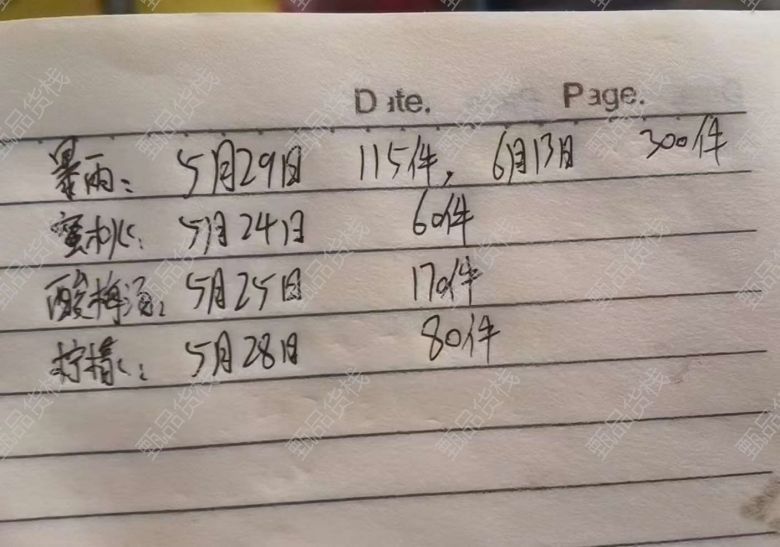 Date. Page.
暴雨: 5月29日 115件, 6月13日 300件
蜜桃: 5月24日 60件
酸梅汤: 5月25日 170件
柠檬: 5月28日 80件
甄品货栈